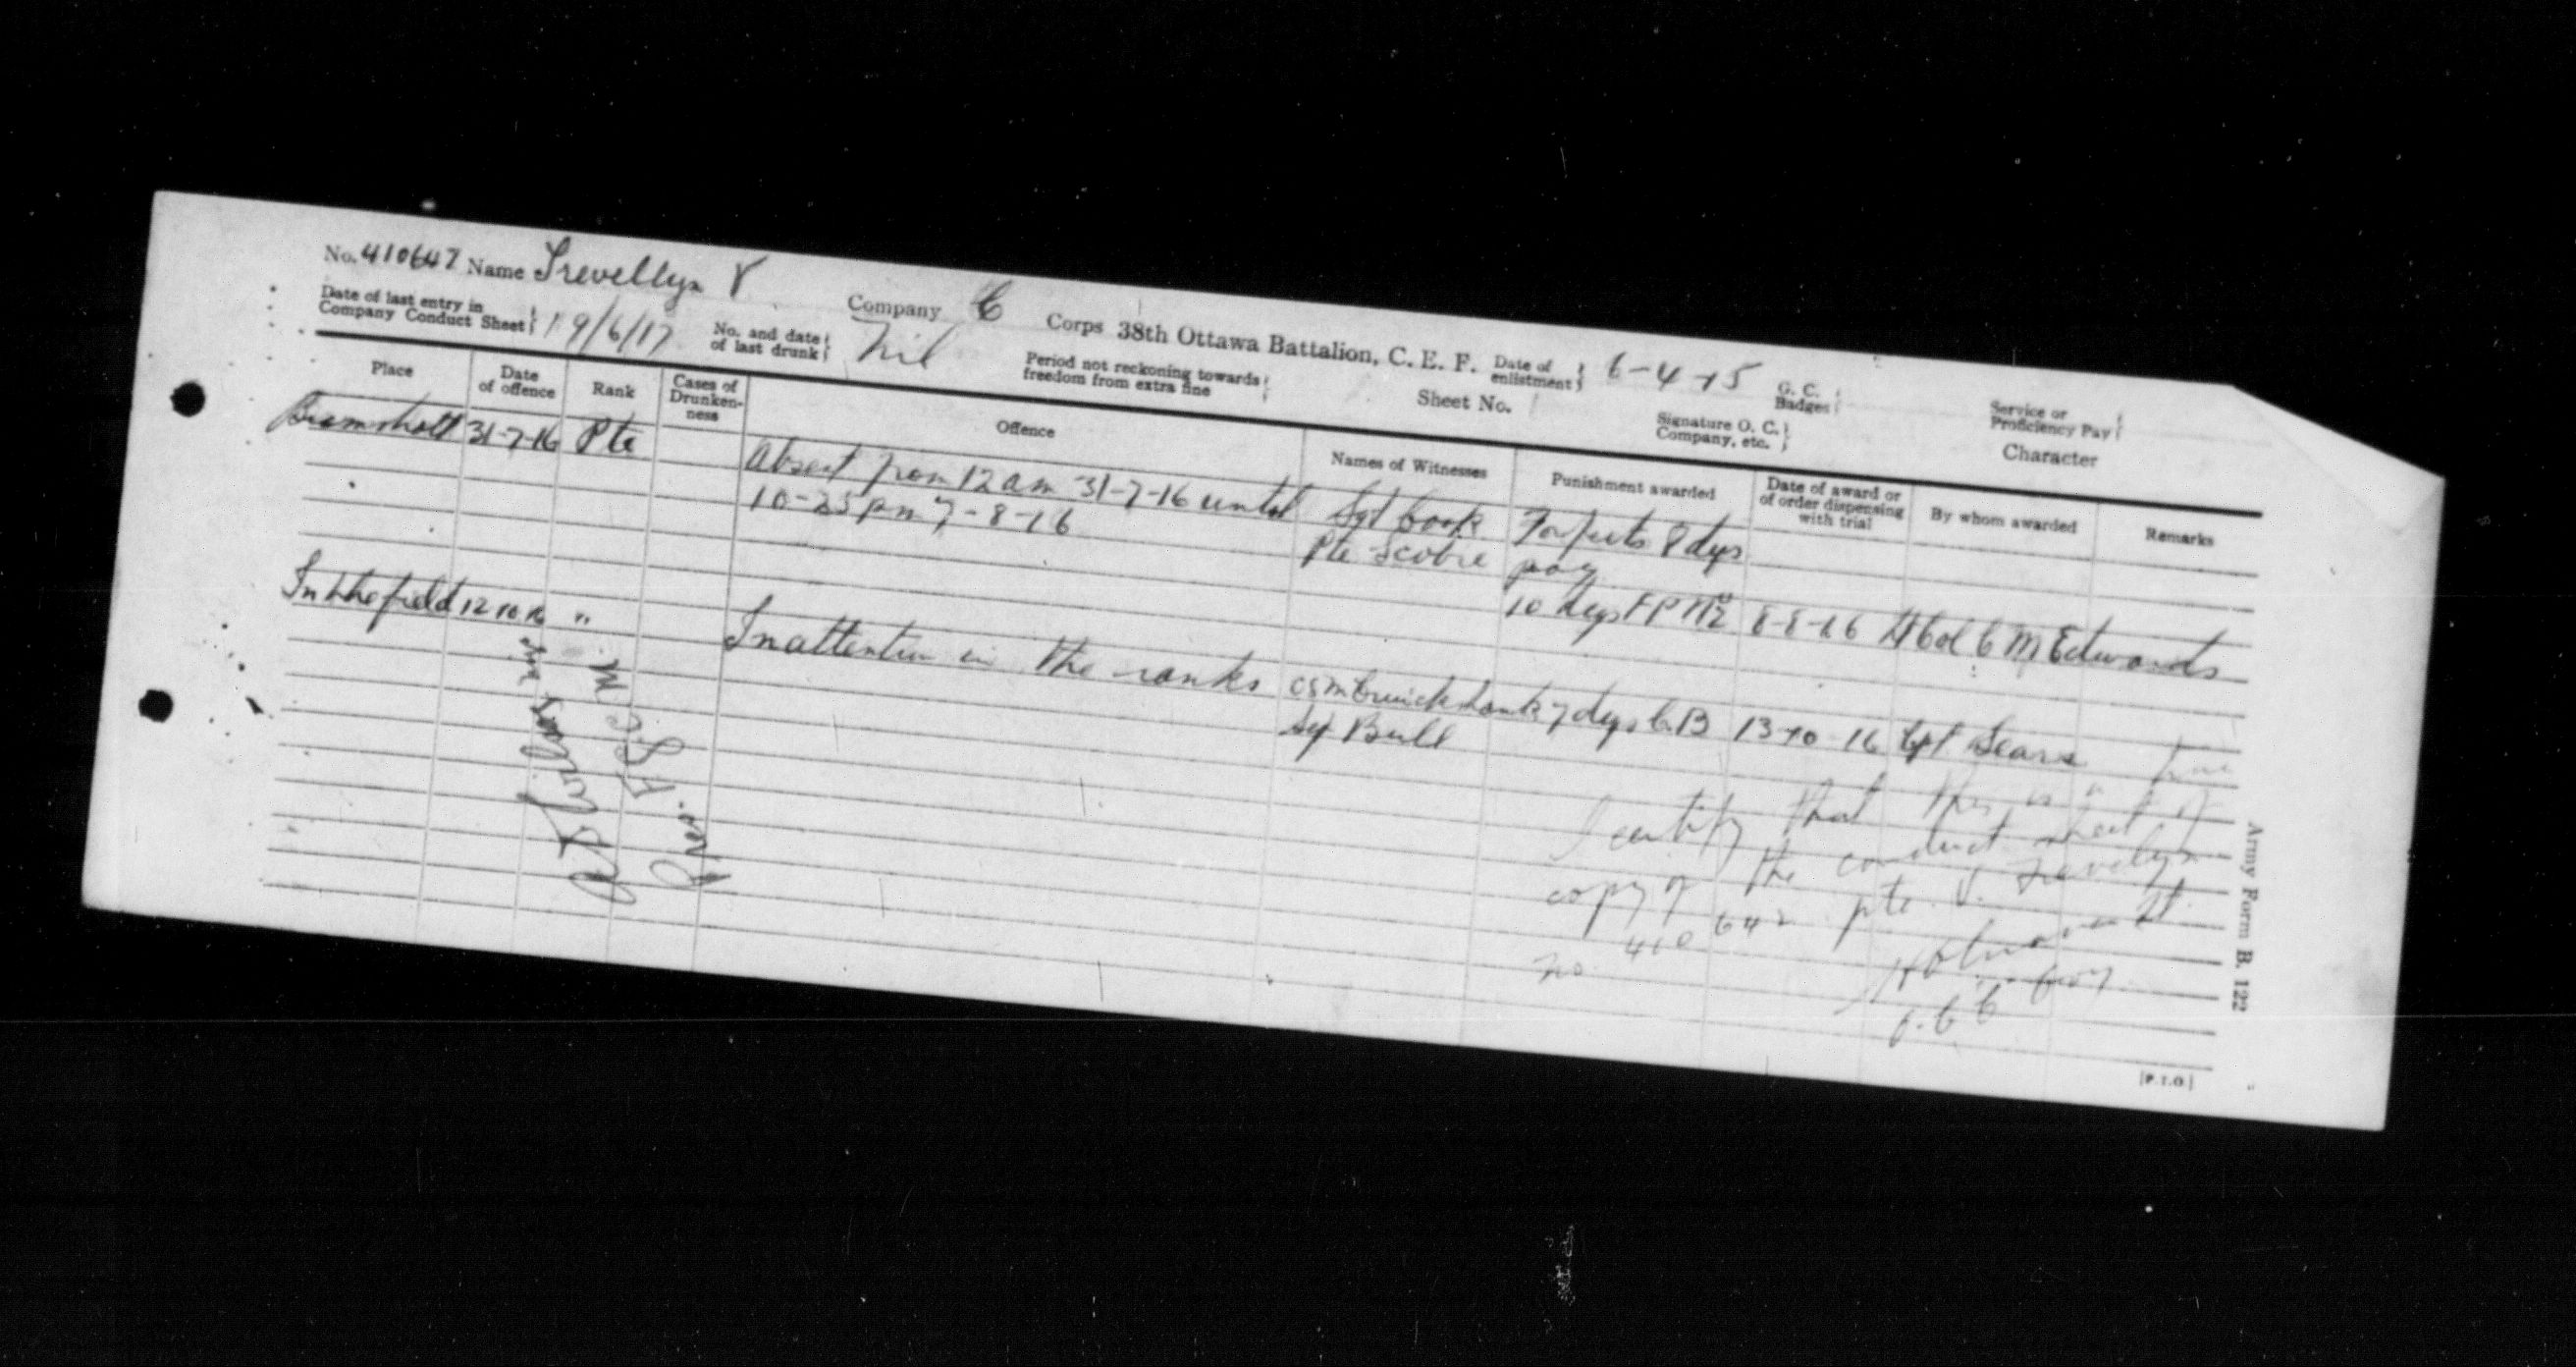 No. 410647 Name Trevellyn V Company C Corps 38th Ottawa Battalion, C. E. F. Date of enlistment 6-4-15 G. C. Badges Service or Proficiency Pay
Date of last entry in Company Conduct Sheet 19/6/17 No. and date of last drunk Nil Period not reckoning towards freedom from extra fine Sheet No. Signature O. C. Company, etc. Character
Place Date of offence Rank Cases of Drunken-ness Offence Names of Witnesses Punishment awarded Date of award or of order dispensing with trial By whom awarded Remarks
Bramshott 31-7-16 Pte Absent from 12 am 31-7-16 until Sgt Cook Forfeits 8 dys
10-25 pm 7-8-16 Pte Scobie pay
10 days F P No 2 8-8-16 Lt Col C M Edwards
In the field 12 10 16 " Inattention in the ranks CSM Cruickshank 7 dys C.B 13-10-16 Cpt Sears
Sgt Bull
I certify that this is a true
copy of the conduct sheet of
no. 410642 pte. V. Trevelyn
Lt.
O.C C Coy
Army Form B. 122
[P.T.O.]